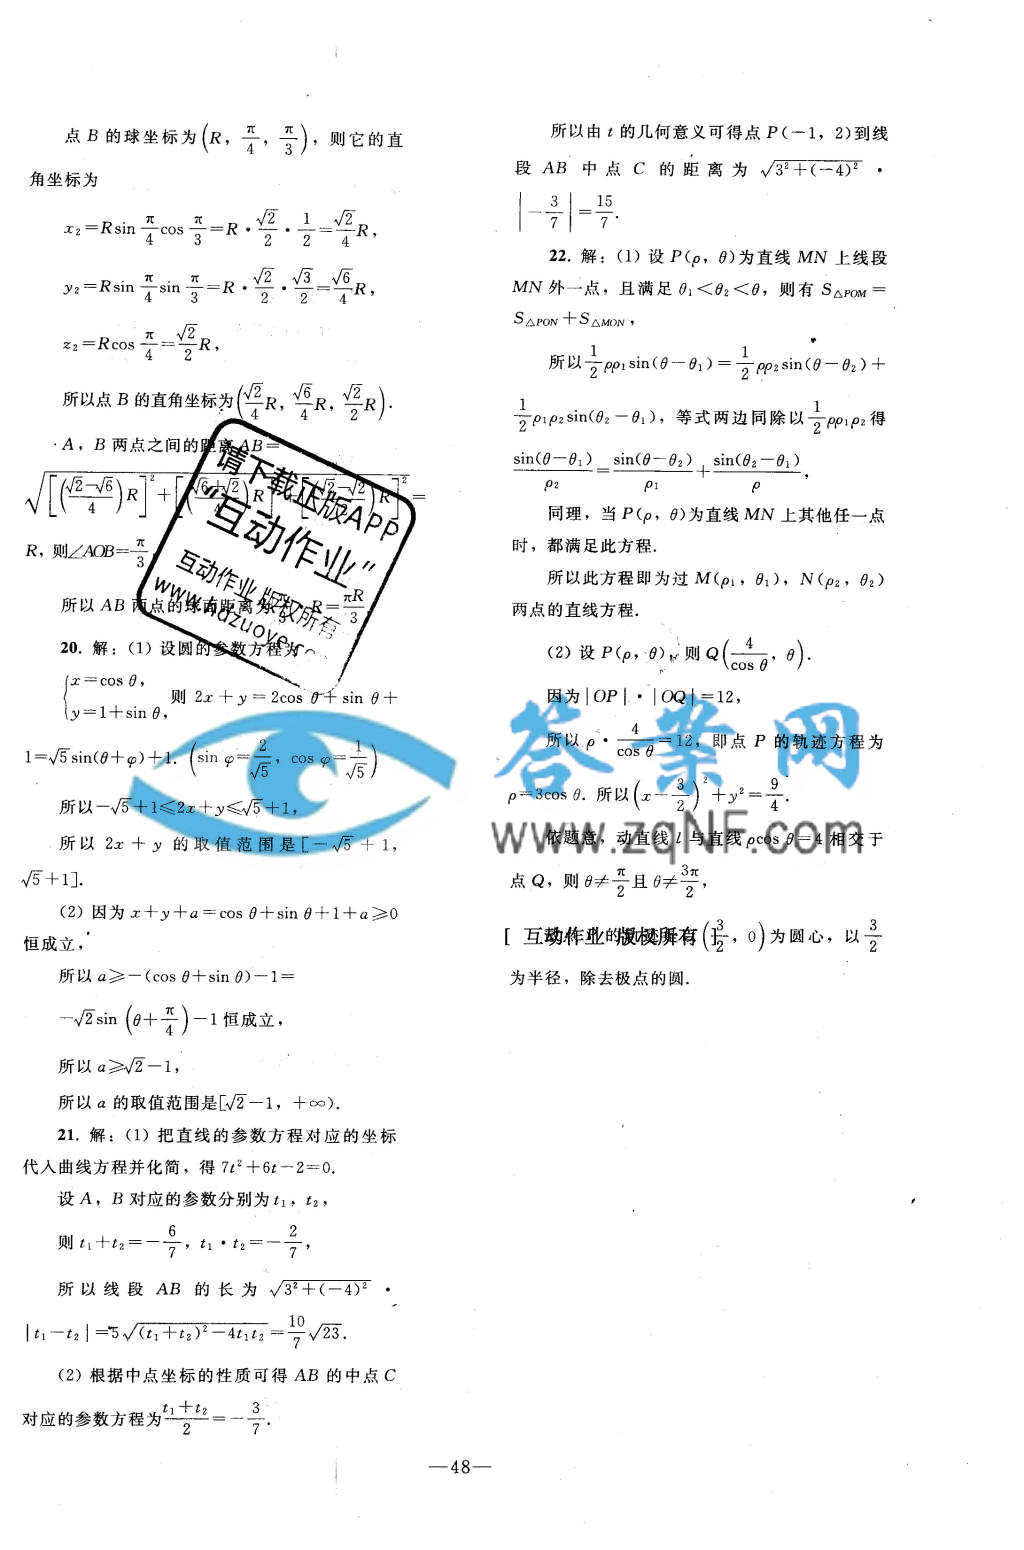 点 B 的球坐标为(R, π/4, π/3), 则它的直
角坐标为
x₂=Rsin π/4 cos π/3=R·√2/2·1/2=√2/4 R,
y₂=Rsin π/4 sin π/3=R·√2/2·√3/2=√6/4 R,
z₂=Rcos π/4=√2/2 R,
所以点 B 的直角坐标为(√2/4 R, √6/4 R, √2/2 R).
A, B 两点之间的距离 AB=
√([(√2-√6)/4 R]²+[(√6+√2)/4 R]²+[(√2-√2)/2 R]²)=
R, 则∠AOB=π/3
所以 AB 两点的球面距离为π/3·R=πR/3
20. 解: (1) 设圆的参数方程为
{x=cos θ, y=1+sin θ, 则 2x+y=2cos θ+sin θ+
1=√5sin(θ+φ)+1. (sin φ=2/√5, cos φ=1/√5)
所以-√5+1≤2x+y≤√5+1,
所以 2x+y 的取值范围是[-√5+1,
√5+1].
(2) 因为 x+y+a=cos θ+sin θ+1+a≥0
恒成立,
所以 a≥-(cos θ+sin θ)-1=
-√2sin(θ+π/4)-1 恒成立,
所以 a≥√2-1,
所以 a 的取值范围是[√2-1, +∞).
21. 解: (1) 把直线的参数方程对应的坐标
代入曲线方程并化简, 得 7t²+6t-2=0.
设 A, B 对应的参数分别为 t₁, t₂,
则 t₁+t₂=-6/7, t₁·t₂=-2/7,
所以线段 AB 的长为 √(3²+(-4)²)·
|t₁-t₂|=5√((t₁+t₂)²-4t₁t₂)=10/7 √23.
(2) 根据中点坐标的性质可得 AB 的中点 C
对应的参数方程为(t₁+t₂)/2=-3/7.
所以由 t 的几何意义可得点 P(-1, 2)到线
段 AB 中点 C 的距离为 √(3²+(-4)²)·
|-3/7|=15/7.
22. 解: (1) 设 P(ρ, θ)为直线 MN 上线段
MN 外一点, 且满足 θ₁<θ₂<θ, 则有 S△POM=
S△PON+S△MON,
所以 1/2 ρρ₁sin(θ-θ₁)=1/2 ρρ₂sin(θ-θ₂)+
1/2 ρ₁ρ₂sin(θ₂-θ₁), 等式两边同除以 1/2 ρρ₁ρ₂得
sin(θ-θ₁)/ρ₂=sin(θ-θ₂)/ρ₁+sin(θ₂-θ₁)/ρ.
同理, 当 P(ρ, θ)为直线 MN 上其他任一点
时, 都满足此方程.
所以此方程即为过 M(ρ₁, θ₁), N(ρ₂, θ₂)
两点的直线方程.
(2) 设 P(ρ, θ), 则 Q(4/cos θ, θ).
因为|OP|·|OQ|=12,
所以 ρ·4/cos θ=12, 即点 P 的轨迹方程为
ρ=3cos θ. 所以(x-3/2)²+y²=9/4.
依题意, 动直线 l 与直线 ρcos θ=4 相交于
点 Q, 则 θ≠π/2 且 θ≠3π/2,
(3/2, 0)为圆心, 以 3/2
为半径, 除去极点的圆.
请下载正版APP
“互动作业”
互动作业 版权所有
答案网
www.zqNF.com
[ 互动作业 版权所有 ]
—48—